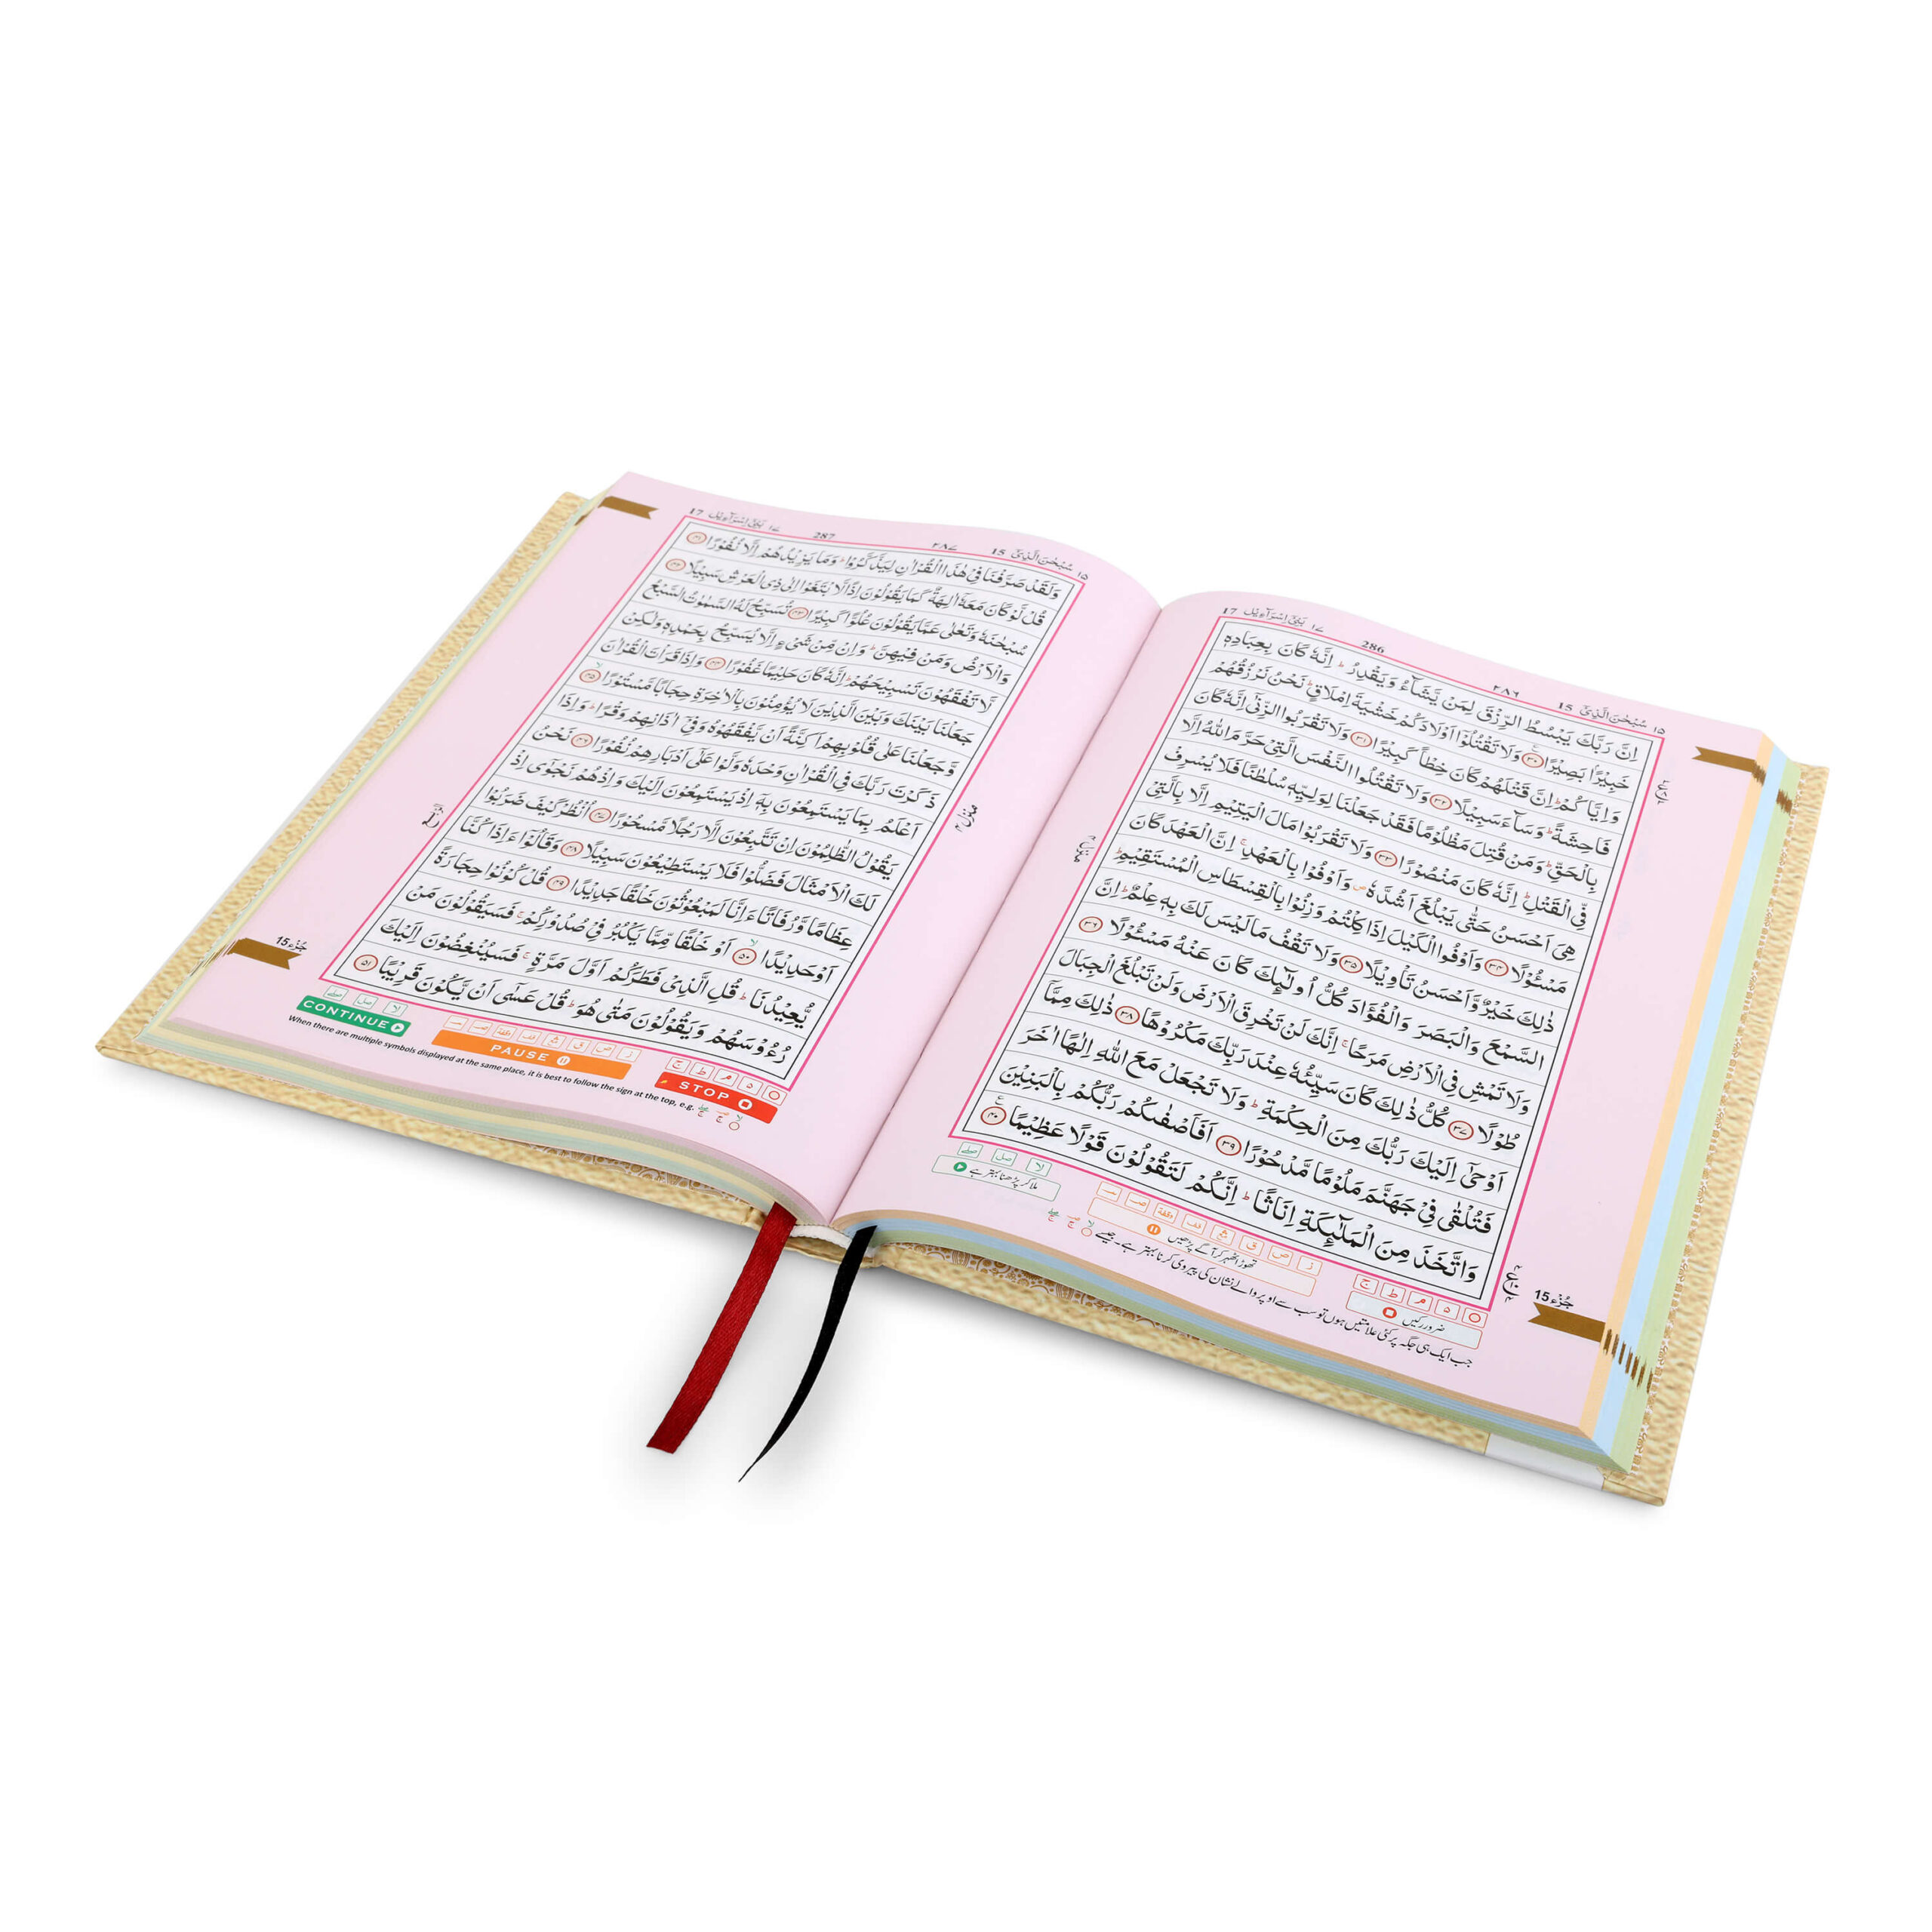 ١٥ سُبْحٰنَ الَّذِىْٓ 15
٢٨٦
286
١٧ بَنِىْٓ اِسْرَآءِيْل 17
اِنَّ رَبَّكَ يَبْسُطُ الرِّزْقَ لِمَنْ يَّشَآءُ وَيَقْدِرُ ؕ اِنَّهٗ كَانَ بِعِبَادِهٖ
خَبِيْرًۢا بَصِيْرًا ۝٣٠ وَلَا تَقْتُلُوْٓا اَوْلَادَكُمْ خَشْيَةَ اِمْلَاقٍ ؕ نَحْنُ نَرْزُقُهُمْ
وَاِيَّاكُمْ ؕ اِنَّ قَتْلَهُمْ كَانَ خِطْاً كَبِيْرًا ۝٣١ وَلَا تَقْرَبُوا الزِّنٰٓى اِنَّهٗ كَانَ
فَاحِشَةً ؕ وَسَآءَ سَبِيْلًا ۝٣٢ وَلَا تَقْتُلُوا النَّفْسَ الَّتِىْ حَرَّمَ اللّٰهُ اِلَّا
بِالْحَقِّ ؕ وَمَنْ قُتِلَ مَظْلُوْمًا فَقَدْ جَعَلْنَا لِوَلِيِّهٖ سُلْطٰنًا فَلَا يُسْرِفْ
فِّى الْقَتْلِ ؕ اِنَّهٗ كَانَ مَنْصُوْرًا ۝٣٣ وَلَا تَقْرَبُوْا مَالَ الْيَتِيْمِ اِلَّا بِالَّتِىْ
هِىَ اَحْسَنُ حَتّٰى يَبْلُغَ اَشُدَّهٗ ۖ وَاَوْفُوْا بِالْعَهْدِ ۚ اِنَّ الْعَهْدَ كَانَ
مَسْـُٔوْلًا ۝٣٤ وَاَوْفُوا الْكَيْلَ اِذَا كِلْتُمْ وَزِنُوْا بِالْقِسْطَاسِ الْمُسْتَقِيْمِ ؕ
ذٰلِكَ خَيْرٌ وَّاَحْسَنُ تَاْوِيْلًا ۝٣٥ وَلَا تَقْفُ مَا لَيْسَ لَكَ بِهٖ عِلْمٌ ؕ اِنَّ
السَّمْعَ وَالْبَصَرَ وَالْفُؤَادَ كُلُّ اُولٰٓئِكَ كَانَ عَنْهُ مَسْـُٔوْلًا ۝٣٦
وَلَا تَمْشِ فِى الْاَرْضِ مَرَحًا ۚ اِنَّكَ لَنْ تَخْرِقَ الْاَرْضَ وَلَنْ تَبْلُغَ الْجِبَالَ
طُوْلًا ۝٣٧ كُلُّ ذٰلِكَ كَانَ سَيِّئُهٗ عِنْدَ رَبِّكَ مَكْرُوْهًا ۝٣٨ ذٰلِكَ مِمَّآ
اَوْحٰٓى اِلَيْكَ رَبُّكَ مِنَ الْحِكْمَةِ ؕ وَلَا تَجْعَلْ مَعَ اللّٰهِ اِلٰهًا اٰخَرَ
فَتُلْقٰى فِىْ جَهَنَّمَ مَلُوْمًا مَّدْحُوْرًا ۝٣٩ اَفَاَصْفٰىكُمْ رَبُّكُمْ بِالْبَنِيْنَ
وَاتَّخَذَ مِنَ الْمَلٰٓئِكَةِ اِنَاثًا ؕ اِنَّكُمْ لَتَقُوْلُوْنَ قَوْلًا عَظِيْمًا ۝٤٠
جُزْء 15
ضرور رکیں
تھوڑا ٹھہر کر آگے پڑھیں
ملا کر پڑھنا بہتر ہے
جب ایک ہی جگہ پر کئی علامتیں ہوں تو سب سے اوپر والے نشان کی پیروی کرنا بہتر ہے۔ جیسے
١٥ سُبْحٰنَ الَّذِىْٓ 15
٢٨٧
287
١٧ بَنِىْٓ اِسْرَآءِيْل 17
وَلَقَدْ صَرَّفْنَا فِىْ هٰذَا الْقُرْاٰنِ لِيَذَّكَّرُوْا ؕ وَمَا يَزِيْدُهُمْ اِلَّا نُفُوْرًا ۝٤١
قُلْ لَّوْ كَانَ مَعَهٗٓ اٰلِهَةٌ كَمَا يَقُوْلُوْنَ اِذًا لَّابْتَغَوْا اِلٰى ذِى الْعَرْشِ سَبِيْلًا ۝٤٢
سُبْحٰنَهٗ وَتَعٰلٰى عَمَّا يَقُوْلُوْنَ عُلُوًّا كَبِيْرًا ۝٤٣ تُسَبِّحُ لَهُ السَّمٰوٰتُ السَّبْعُ
وَالْاَرْضُ وَمَنْ فِيْهِنَّ ؕ وَاِنْ مِّنْ شَىْءٍ اِلَّا يُسَبِّحُ بِحَمْدِهٖ وَلٰكِنْ
لَّا تَفْقَهُوْنَ تَسْبِيْحَهُمْ ؕ اِنَّهٗ كَانَ حَلِيْمًا غَفُوْرًا ۝٤٤ وَاِذَا قَرَاْتَ الْقُرْاٰنَ
جَعَلْنَا بَيْنَكَ وَبَيْنَ الَّذِيْنَ لَا يُؤْمِنُوْنَ بِالْاٰخِرَةِ حِجَابًا مَّسْتُوْرًا ۝٤٥
وَّجَعَلْنَا عَلٰى قُلُوْبِهِمْ اَكِنَّةً اَنْ يَّفْقَهُوْهُ وَفِىْٓ اٰذَانِهِمْ وَقْرًا ؕ وَاِذَا
ذَكَرْتَ رَبَّكَ فِى الْقُرْاٰنِ وَحْدَهٗ وَلَّوْا عَلٰٓى اَدْبَارِهِمْ نُفُوْرًا ۝٤٦ نَحْنُ
اَعْلَمُ بِمَا يَسْتَمِعُوْنَ بِهٖٓ اِذْ يَسْتَمِعُوْنَ اِلَيْكَ وَاِذْ هُمْ نَجْوٰٓى اِذْ
يَقُوْلُ الظّٰلِمُوْنَ اِنْ تَتَّبِعُوْنَ اِلَّا رَجُلًا مَّسْحُوْرًا ۝٤٧ اُنْظُرْ كَيْفَ ضَرَبُوْا
لَكَ الْاَمْثَالَ فَضَلُّوْا فَلَا يَسْتَطِيْعُوْنَ سَبِيْلًا ۝٤٨ وَقَالُوْٓا ءَاِذَا كُنَّا
عِظَامًا وَّرُفَاتًا ءَاِنَّا لَمَبْعُوْثُوْنَ خَلْقًا جَدِيْدًا ۝٤٩ قُلْ كُوْنُوْا حِجَارَةً
اَوْ حَدِيْدًا ۝٥٠ اَوْ خَلْقًا مِّمَّا يَكْبُرُ فِىْ صُدُوْرِكُمْ ۚ فَسَيَقُوْلُوْنَ مَنْ
يُّعِيْدُنَا ؕ قُلِ الَّذِىْ فَطَرَكُمْ اَوَّلَ مَرَّةٍ ۚ فَسَيُنْغِضُوْنَ اِلَيْكَ
رُءُوْسَهُمْ وَيَقُوْلُوْنَ مَتٰى هُوَ ؕ قُلْ عَسٰٓى اَنْ يَّكُوْنَ قَرِيْبًا ۝٥١
جُزْء 15
CONTINUE
PAUSE
STOP
When there are multiple symbols displayed at the same place, it is best to follow the sign at the top, e.g.